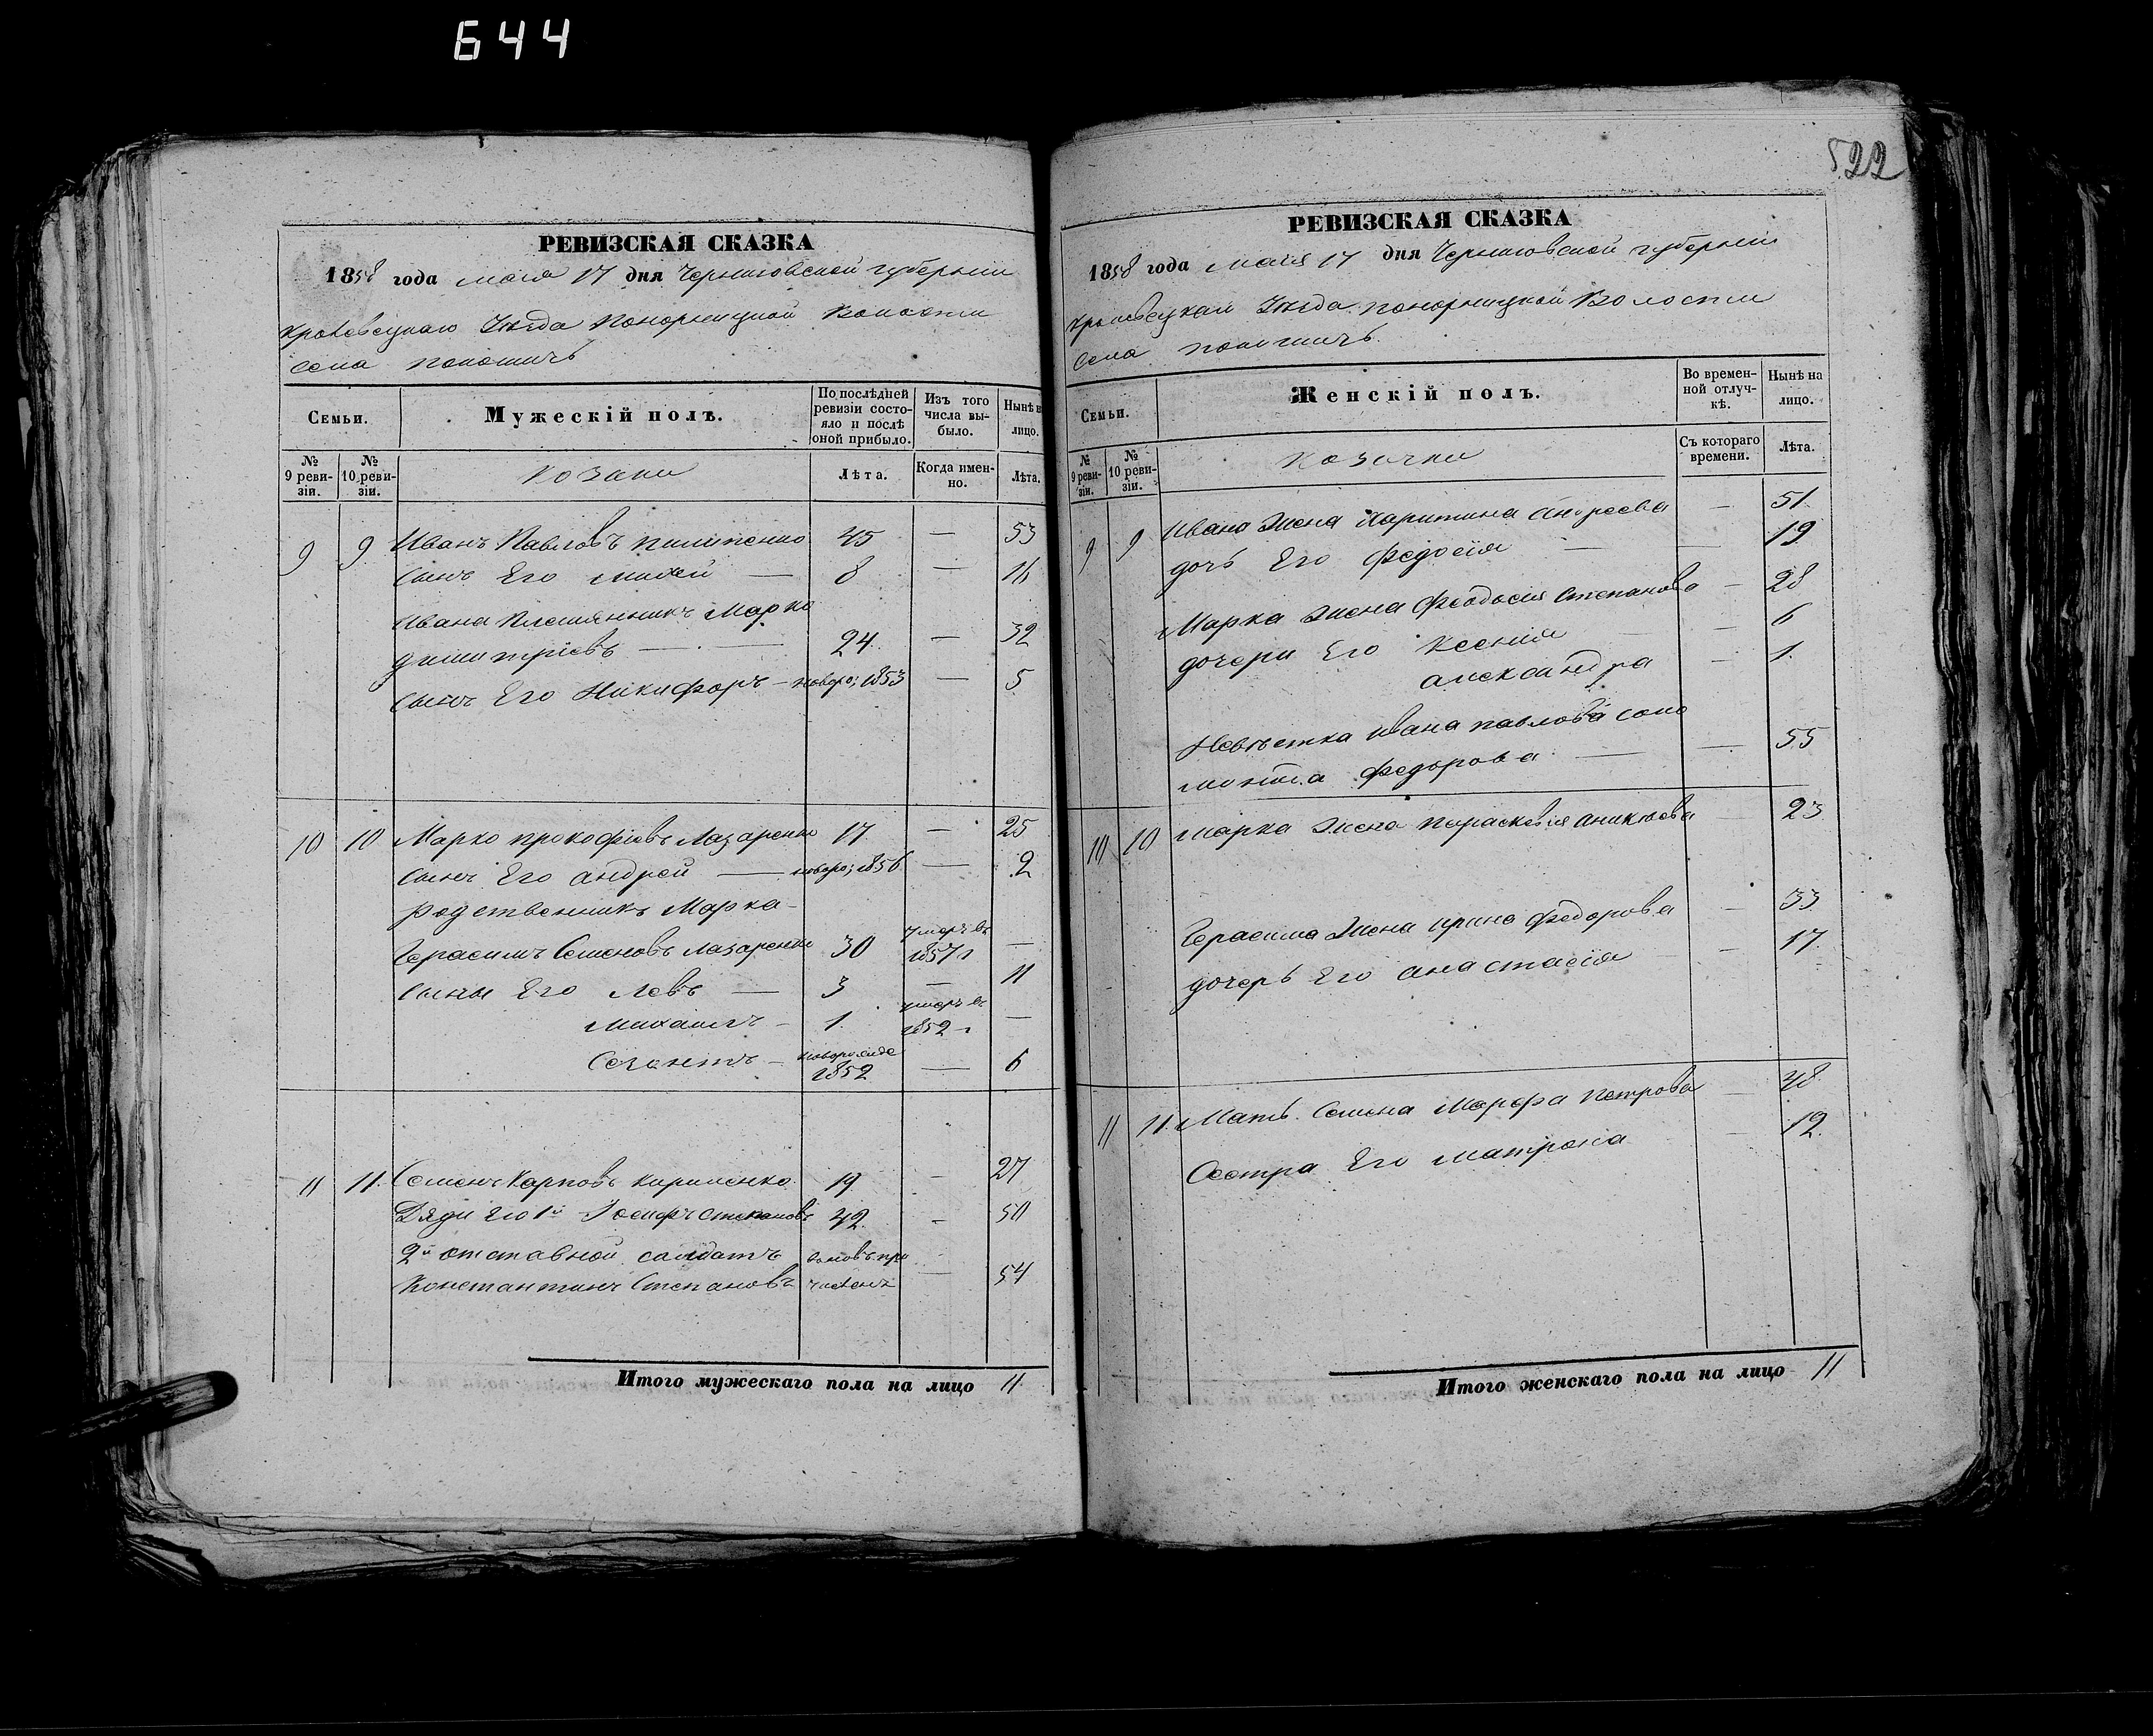 644
522
РЕВИЗСКАЯ СКАЗКА
1858 года мая 17 дня Черниговской губерніи
Кролевецкаго Уѣзда Понорницкой Волости
села
Семьи.
Мужескій полъ.
По послѣдней ревизіи состояло и послѣ оной прибыло.
Изъ того числа выбыло.
Нынѣ на лицо.
№ 9 ревизіи.
№ 10 ревизіи.
козаки
Лѣта.
Когда именно.
Лѣта.
9 9. Иванъ Павловъ Пилипенко 45 — 53
Сынъ Его Михей — 8 — 16
Ивана Племянникъ Марко
Дмитріевъ — 24. — 32
Сынъ Его Никифоръ — новоро; 1853 — 5
10 10 Марко Прокофіевъ Лазаренко 17. — 25
Сынъ Его Андрей — новоро; 1856 — 2
родственникъ Марка
Герасимъ Семеновъ Лазаренко 30 умеръ въ 1857 г —
Сыны Его Левъ — 3 — 11
Михаилъ — 1. умеръ въ 1852 г —
— новорожде 1852 — 6
11 11. Семенъ Карповъ Кириленко 19 — 27
Дяди Его 1й Іосифъ Степановъ 42. — 50
2й отставной солдатъ вновь при
Константинъ Степановъ численъ — 54
Итого мужескаго пола на лицо 11
РЕВИЗСКАЯ СКАЗКА
1858 года мая 17 дня Черниговской губерніи
Кролевецкаго Уѣзда Понорницкой Волости
села
Семьи.
Женскій полъ.
Во временной отлучкѣ.
Нынѣ на лицо.
№ 9 ревизіи.
№ 10 ревизіи.
козачки
Съ котораго времени.
Лѣта.
9 9 Ивана жена Харитина Андреева — 51.
дочь Его Федосія — — 19
Марка жена Феодосія Степанова — 28
дочери Его Ксенія — 6
александра — 1.
Невѣстка Ивана Павлова Соло
монія Федорова — — 55
10 10 Марка жена Параскевія Аникѣева 23
Герасима жена Ирина Федорова — 33
дочерь Его Анастасія — 17.
11 11. Мать Семена Марфа Петрова — 48.
Сестра Его Матрона — 12.
Итого женскаго пола на лицо 11